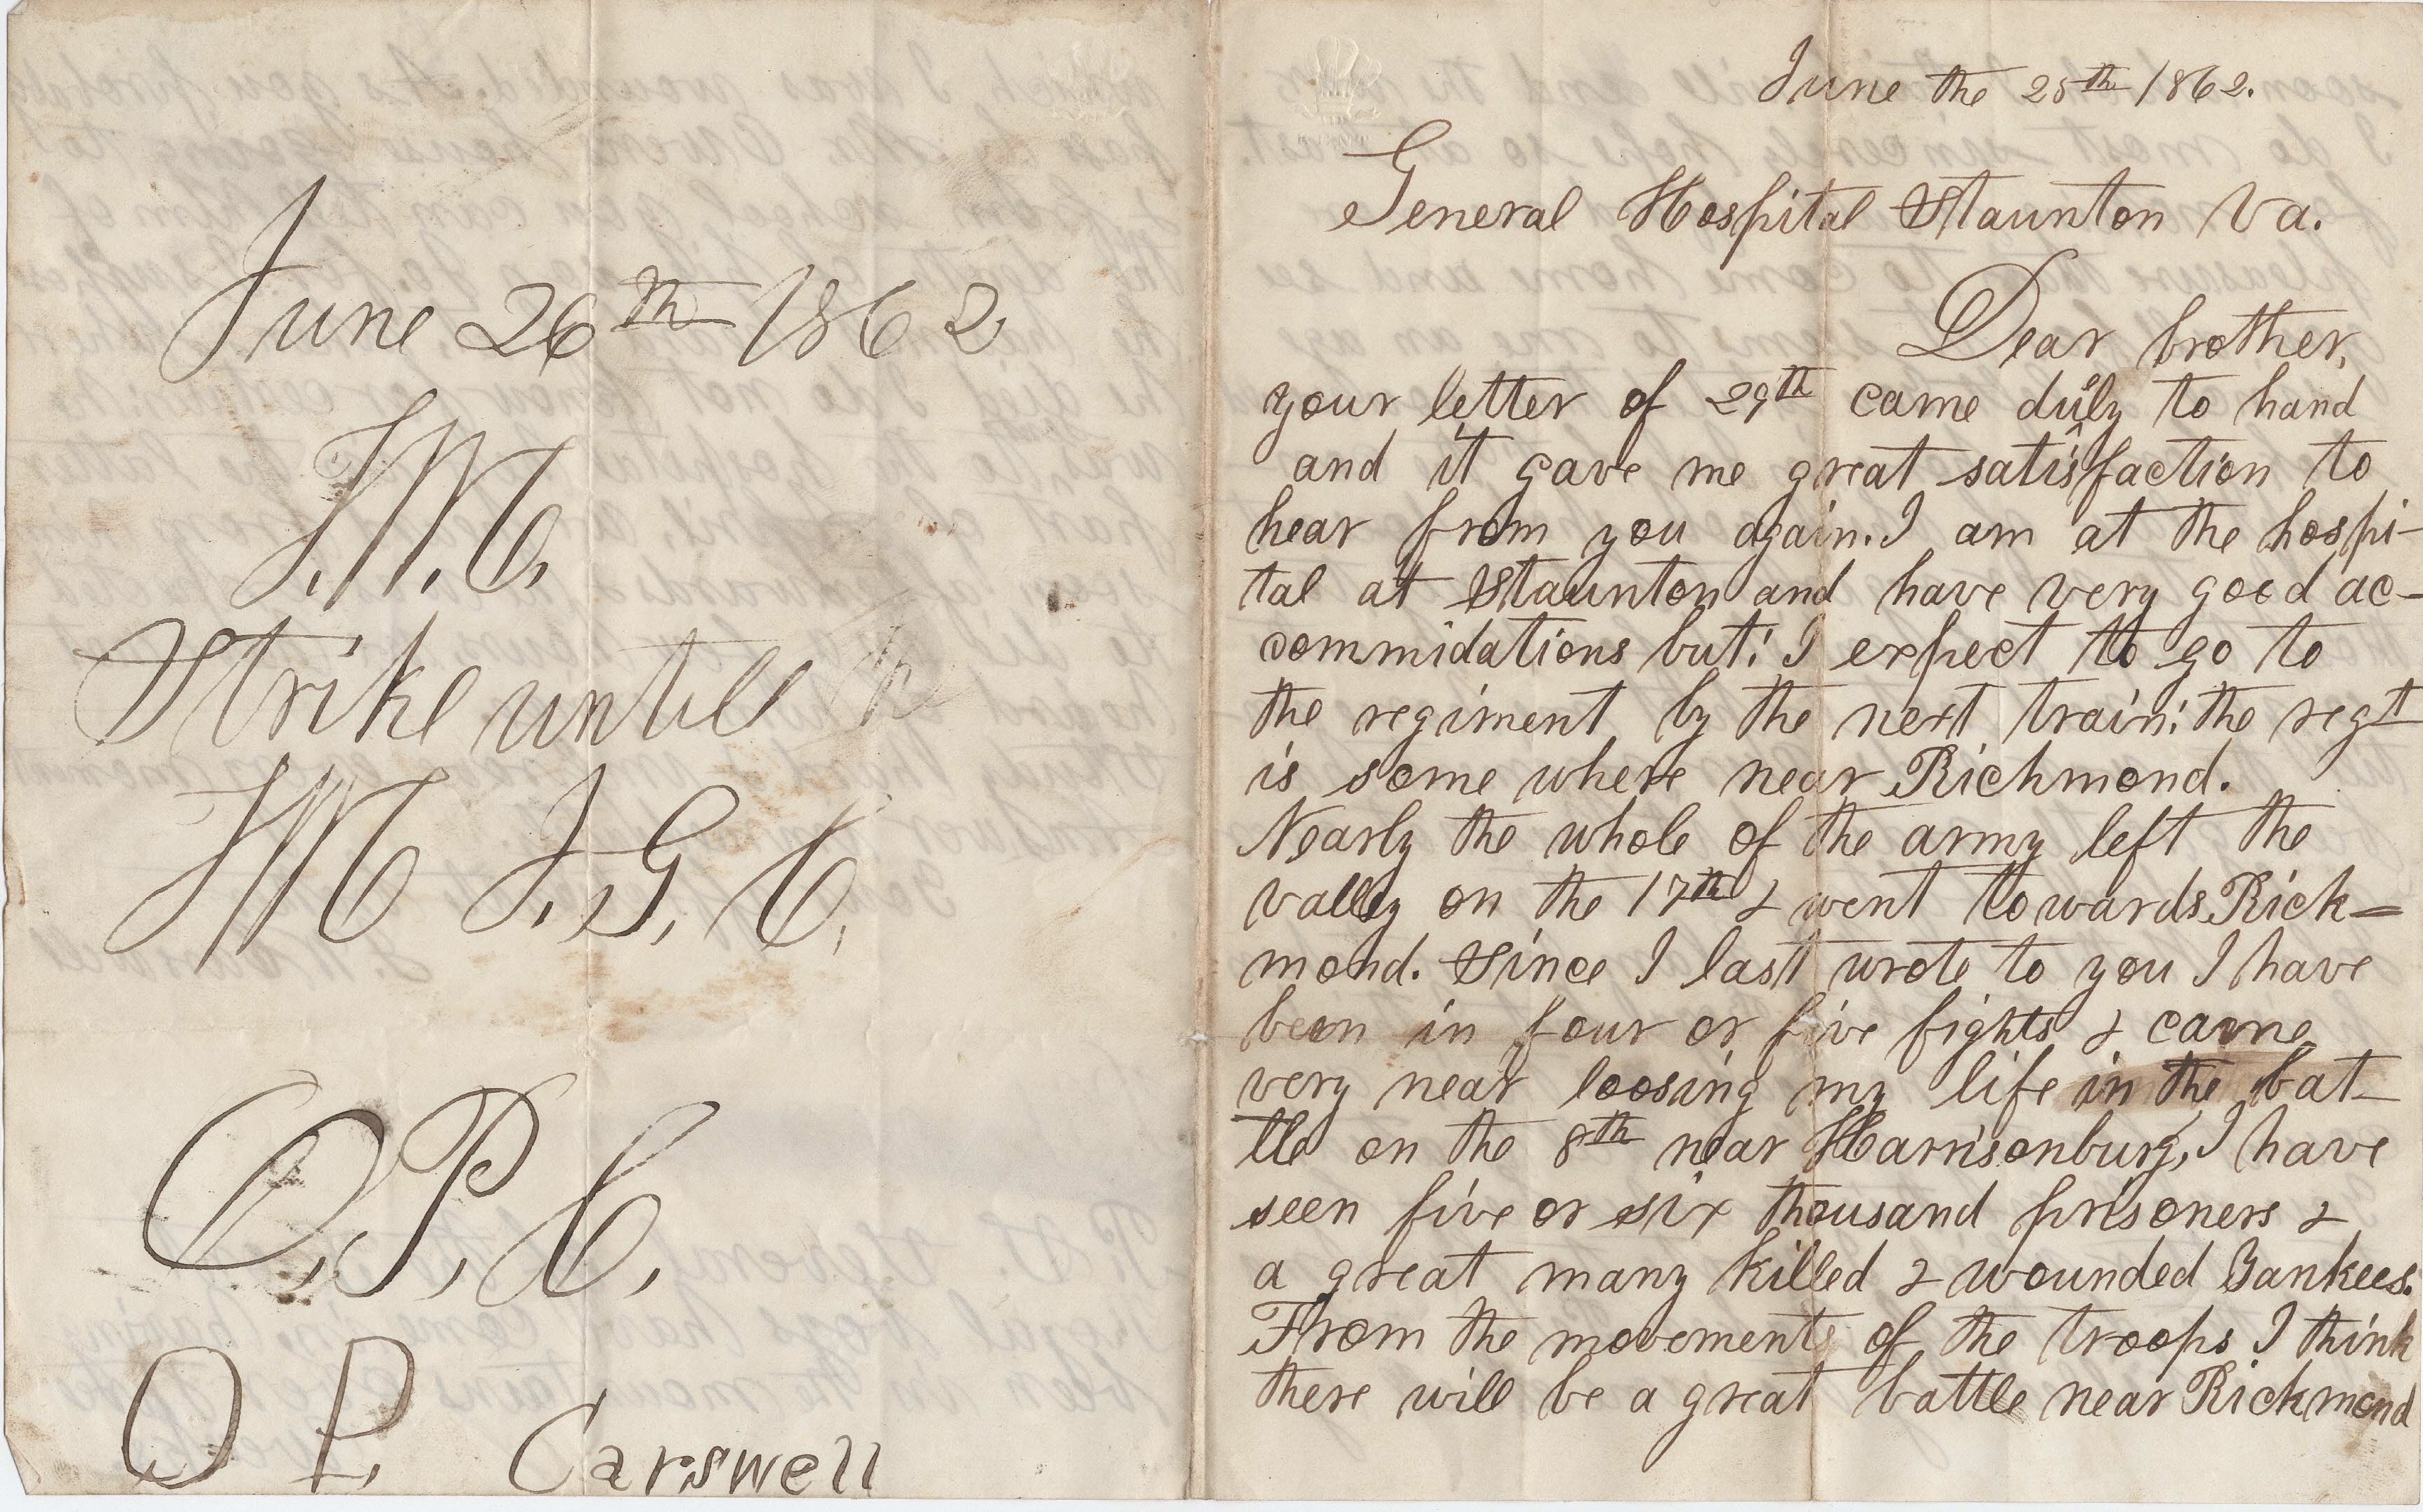 June 26th 1862
J.W.C.
Strike until the
W J.G.C.
O.P.C.
O P. Carswell
June the 25th 1862.
General Hospital Staunton Va.
Dear brother,
your letter of 29th came duly to hand
and it gave me great satisfaction to
hear from you again. I am at the hospi-
tal at Staunton and have very good ac-
commidations but: I expect to go to
the regiment by the next train: the regt
is some where near Richmond.
Nearly the whole of the army left the
valley on the 17th & went towards Rich=
mond. Since I last wrote to you I have
been in four or five fights & came
very near loosing my life in the bat-
tle on the 8th near Harrisonburg, I have
seen five or six thousand prisoners &
a great many killed & wounded Yankees.
From the movements of the troops I think
there will be a great battle near Richmond